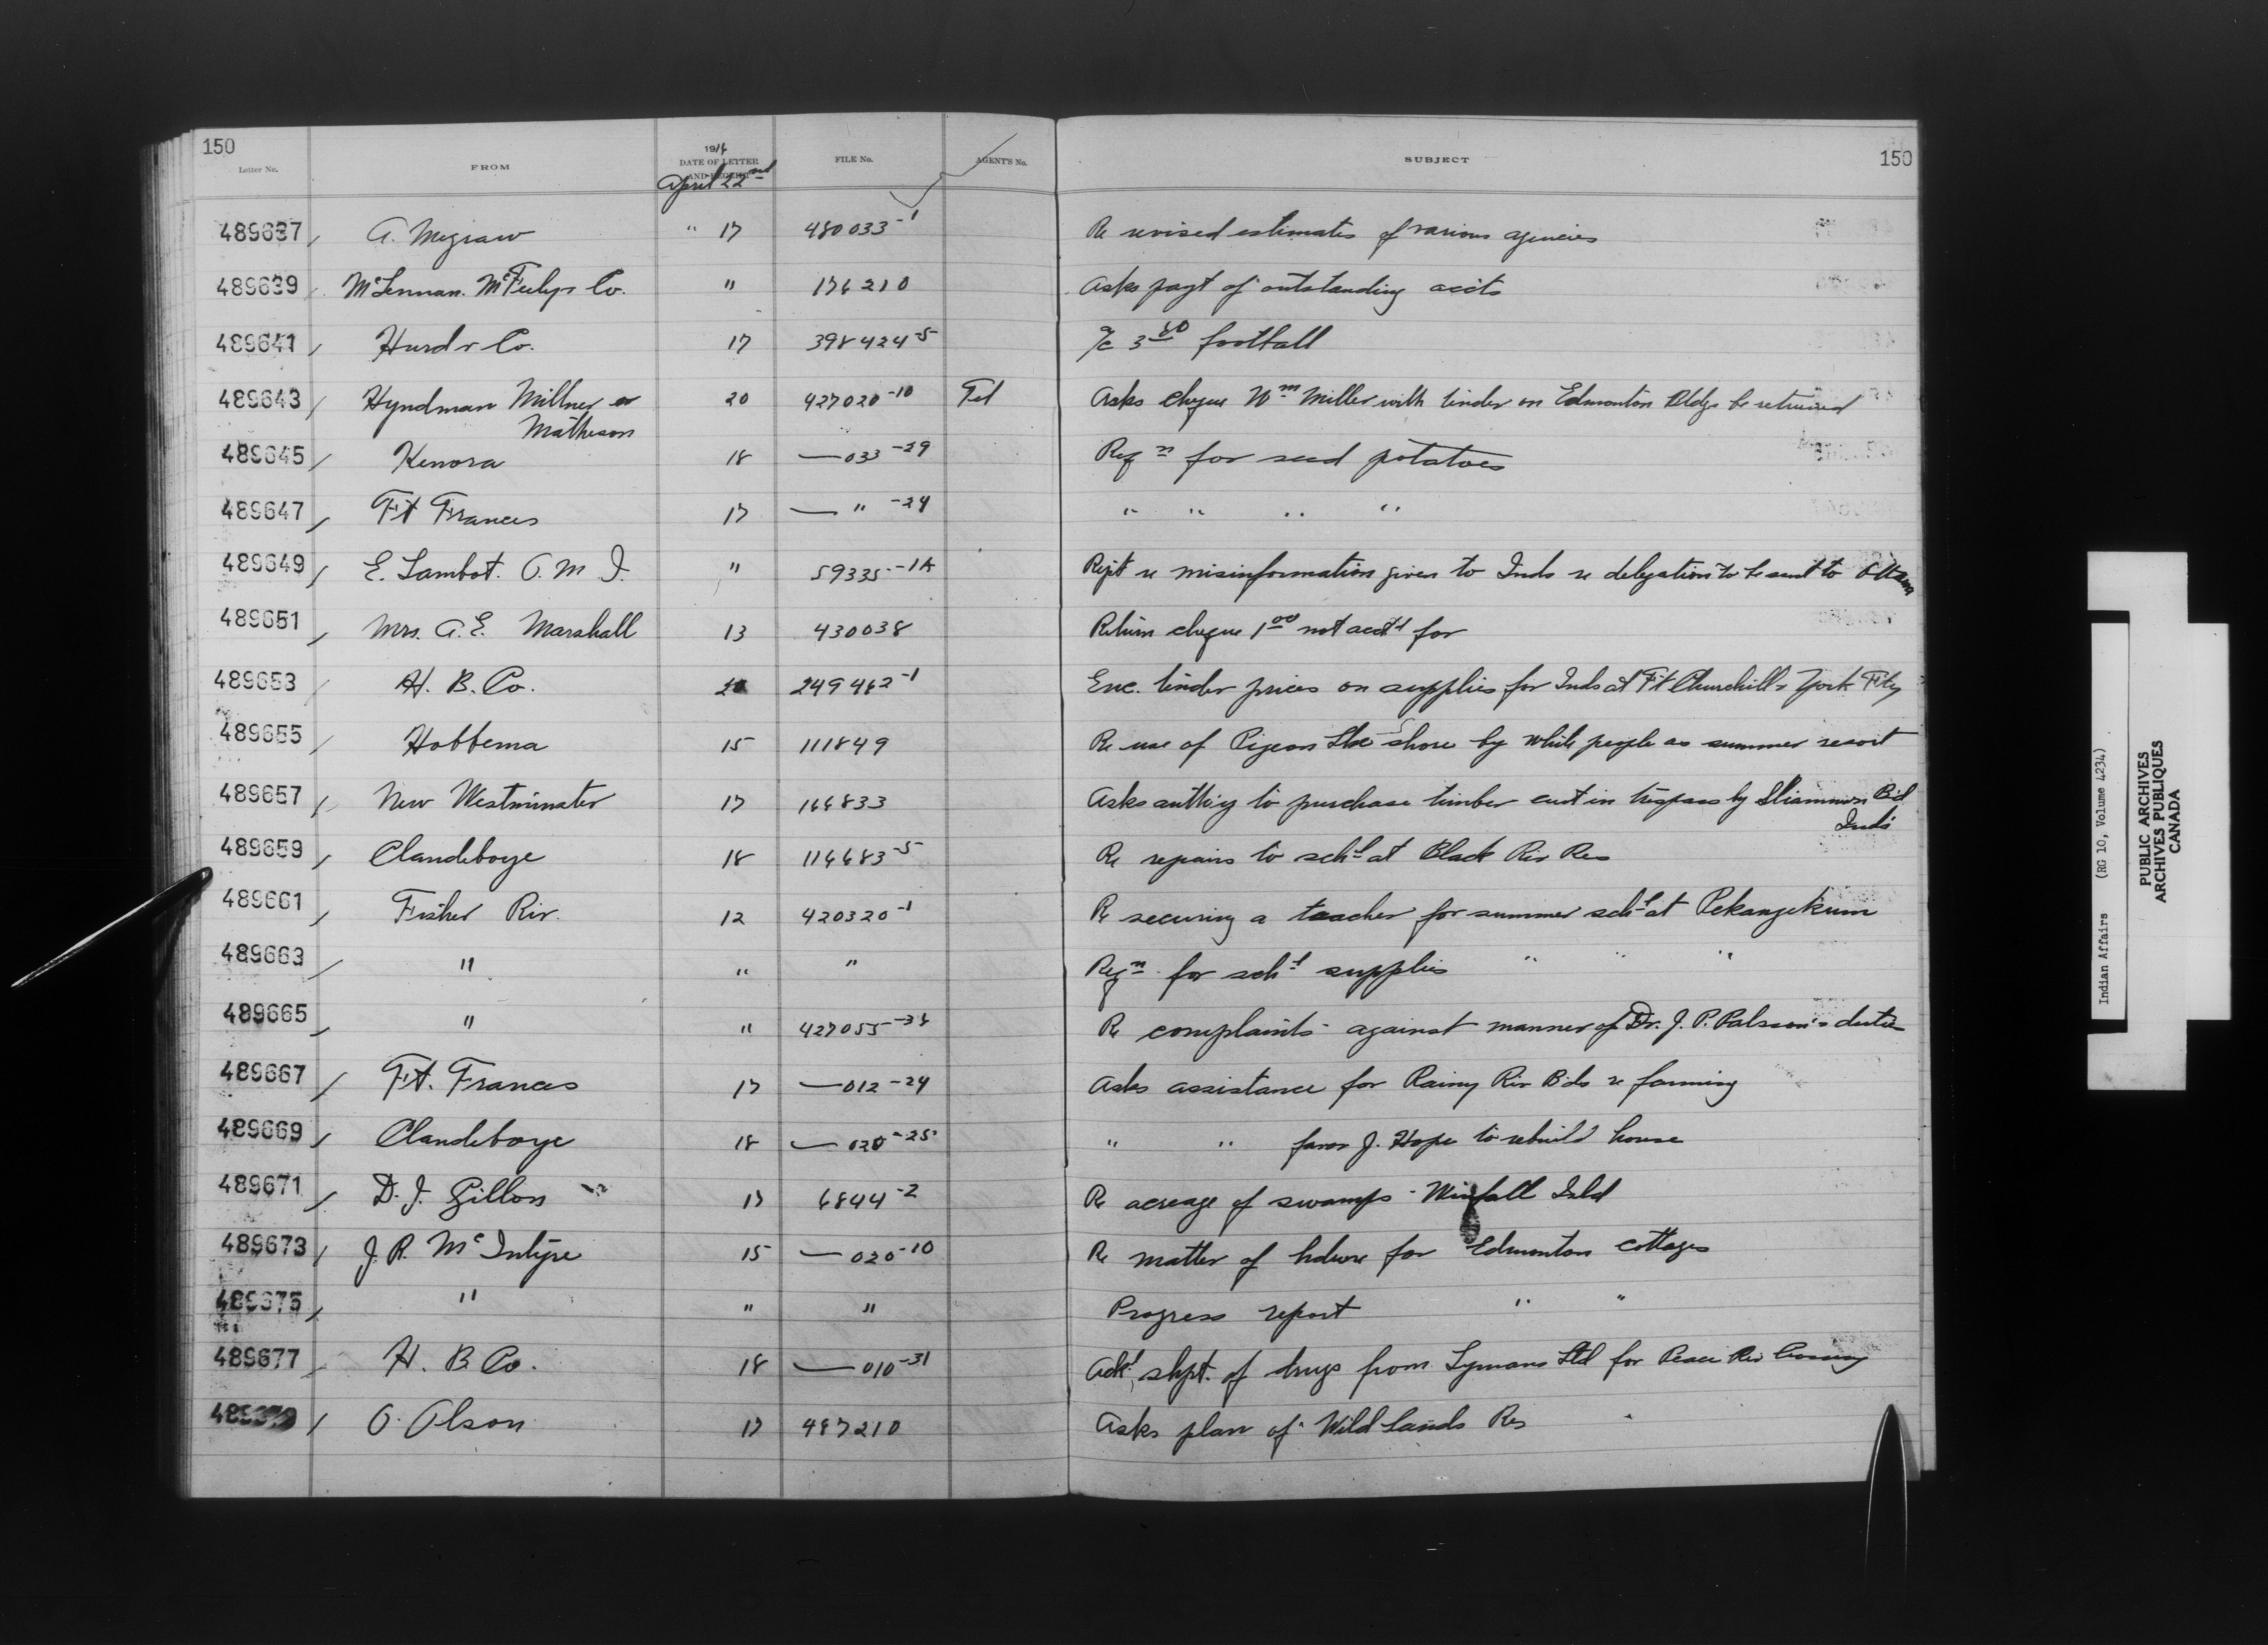 150
150
Letter No.
FROM
1916
DATE OF LETTER
AND RECEIPT
April 22nd
FILE No.
AGENT'S No.
SUBJECT
489637 / A. Megraw " 17 480033-1 Re revised estimates of various agencies
489639 / McLennan. McFeely & Co. " 176210 Asks payt of outstanding accts
489641 / Hurd & Co. 17 398424-5 a/c 3 60 football
489643 / Hyndman Millner & 20 427020-10 Tel Asks cheque Wm Miller with tinder on Edmonton Bldgs be returned
Matheson
489645 / Kenora 18 — 033-29 Reqn for seed potatoes
489647 / Ft Frances 17 — " -24 " " " "
489649 / E. Lambot. O. M. I. " 59335-1A Rept re misinformation given to Inds re delegation to be sent to Ottawa
489651 / Mrs. A. E. Marshall 13 430038 Return cheque 1 00 not acctd for
489653 / H. B. Co. 249462-1 Enc. tinder prices on supplies for Inds at Ft Churchill & York Fty
489655 / Hobbema 15 111849 Re use of Pigeon Lke shore by white people as summer resort
489657 / New Westminster 17 166833 Asks authky to purchase timber cut in trespass by Sliammon Bd
Inds
489659 / Clandeboye 18 116683-5 Re repairs to schl at Black Riv Res
489661 / Fisher Riv. 12 420320-1 Re securing a teacher for summer schl at Pekangekum
489663 / " " " Reqn for schl supplies " " "
489665 / " " 427055-38 Re complaints against manner of Dr. J. P. Palsson's duties
489667 / Ft. Frances 17 — 012-24 Asks assistance for Rainy Riv Bds re farming
489669 / Clandeboye 18 — 020-25 " " favor J. Hope to rebuild house
489671 / D. J. Gillon 17 6844-2 Re acreage of swamps - Winfall Isld
489673 / J. R. McIntyre 15 — 020-10 Re matter of hdwre for Edmonton cottages
489675 / " " " Progress report " "
489677 / H. B Co. 18 — 010-31 Ackt shpt. of drugs from Lymans Ltd for Peace Riv Crossing
489679 / O. Olson 17 487210 Asks plan of Wild Lands Res
Indian Affairs (RG 10, Volume 4234)
PUBLIC ARCHIVES
ARCHIVES PUBLIQUES
CANADA